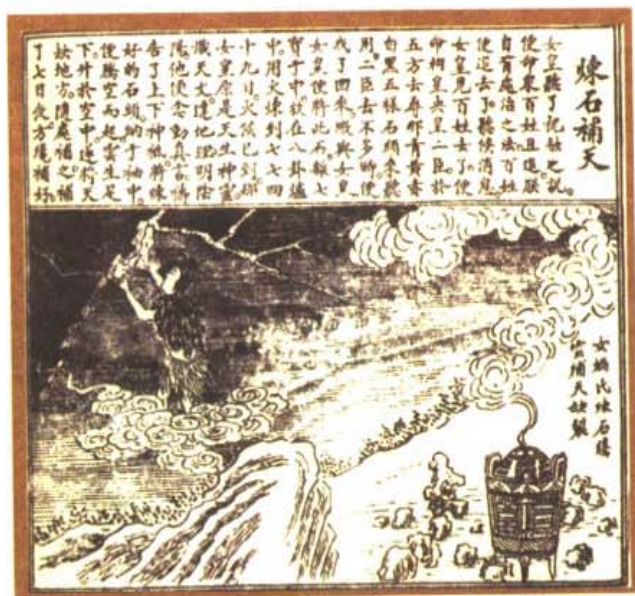 煉石補天
女皇聽了祝融之説
使命衆百姓且退朕
自有處治之法百姓
使退去了聽候消息
女皇見百姓去了便
命相皇央皇二臣於
五方去尋那青黃赤
白黑五樣石頭來聽
用二臣去不多時便
找了回來獻與女皇
女皇便將此石雜七
寶于中放在八卦爐
中用火煉到七七四
十九日火候已到那
女皇原是天生神靈
識天文達地理明陰
陽他便念動真言禱
告了上下神祇將煉
好的石頭納于袖中
便騰空而起雲生足
下升於空中遂將天
缺地方隨處補之補
了七日夜方纔補好
女媧氏煉石騰
雲補天缺裂